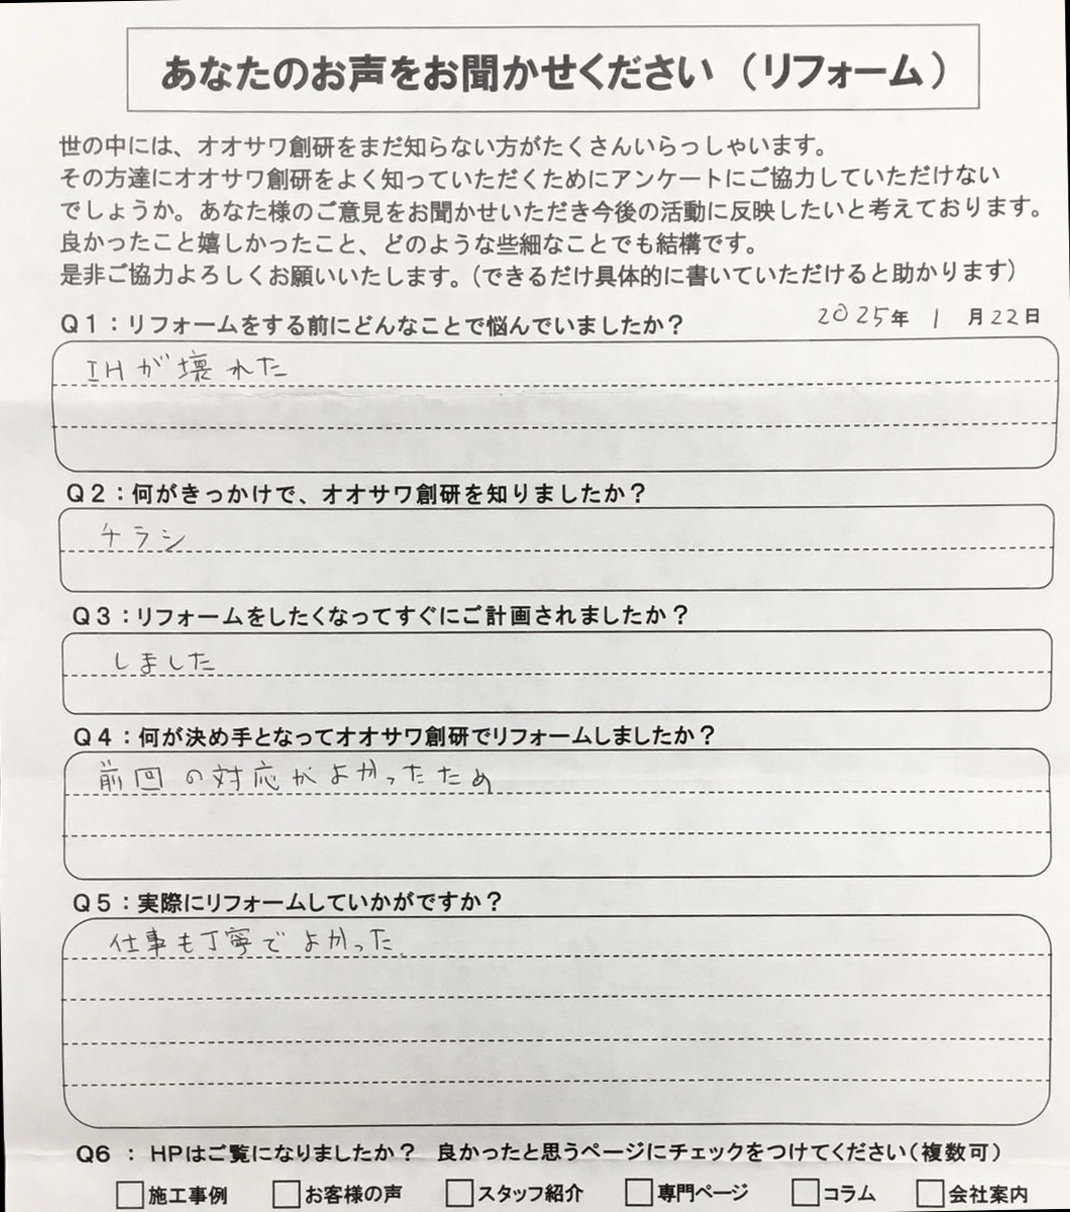 あなたのお声をお聞かせください（リフォーム）
世の中には、オオサワ創研をまだ知らない方がたくさんいらっしゃいます。
その方達にオオサワ創研をよく知っていただくためにアンケートにご協力していただけない
でしょうか。あなた様のご意見をお聞かせいただき今後の活動に反映したいと考えております。
良かったこと嬉しかったこと、どのような些細なことでも結構です。
是非ご協力よろしくお願いいたします。（できるだけ具体的に書いていただけると助かります）
2025年 1 月22日
Q1：リフォームをする前にどんなことで悩んでいましたか？
IHが壊れた
Q2：何がきっかけで、オオサワ創研を知りましたか？
チラシ
Q3：リフォームをしたくなってすぐにご計画されましたか？
しました
Q4：何が決め手となってオオサワ創研でリフォームしましたか？
前回の対応がよかったため
Q5：実際にリフォームしていかがですか？
仕事も丁寧でよかった
Q6 ：HPはご覧になりましたか？ 良かったと思うページにチェックをつけてください（複数可）
□施工事例 □お客様の声 □スタッフ紹介 □専門ページ □コラム □会社案内